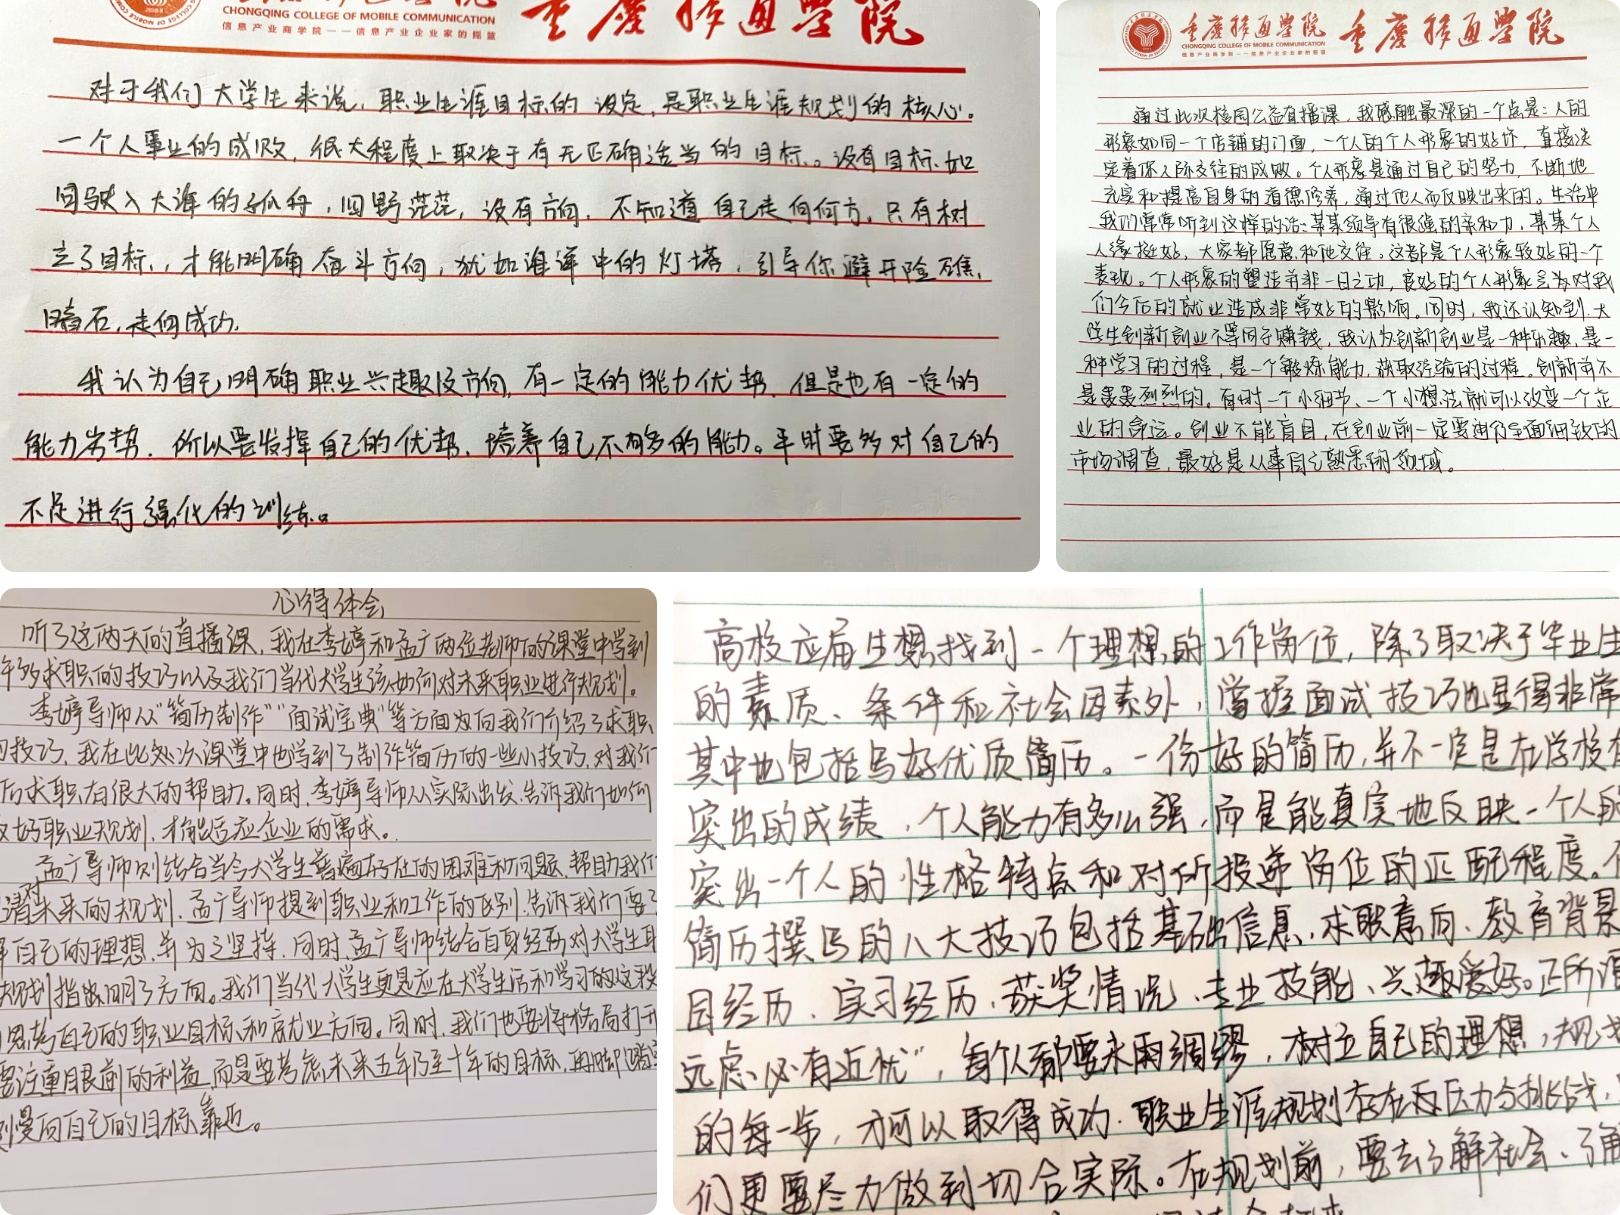 CHONGQING COLLEGE OF MOBILE COMMUNICATION
重庆移通学院
信息产业商学院——信息产业企业家的摇篮
对于我们大学生来说，职业生涯目标的设定，是职业生涯规划的核心。
一个人事业的成败，很大程度上取决于有无正确适当的目标。没有目标如
同驶入大海的孤舟，四野茫茫，没有方向，不知道自己走向何方。只有树
立了目标，才能明确奋斗方向，犹如海洋中的灯塔，引导你避开险礁、
暗石，走向成功。
我认为自己明确职业兴趣及方向，有一定的能力优势，但是也有一定的
能力劣势，所以要发挥自己的优势，培养自己不够多的能力。平时要多对自己的
不足进行强化的训练。
重庆移通学院 重庆移通学院
CHONGQING COLLEGE OF MOBILE COMMUNICATION
信息产业商学院——信息产业企业家的摇篮
通过此次校园公益直播课，我感触最深的一个点是：人的
形象如同一个店铺的门面，一个人的个人形象的好坏，直接决
定着你人际交往的成败。个人形象是通过自己的努力，不断地
充实和提高自身的道德修养，通过他人而反映出来的。生活中
我们常常听到这样的话：某某领导有很强的亲和力，某某个人
人缘挺好，大家都愿意和他交往。这都是个人形象较好的一个
表现。个人形象的塑造并非一日之功，良好的个人形象会为对我
们今后的就业造成非常好的影响。同时，我还认知到，大
学生创新创业不等同于赚钱，我认为创新创业是一种乐趣，是一
种学习的过程，是一个锻炼能力，获取经验的过程。创新并不
是轰轰烈烈的。有时一个小细节、一个小想法就可以改变一个企
业的命运。创业不能盲目，在创业前一定要进行全面细致的
市场调查，最好是从事自己熟悉的领域。
心得体会
听了这两天的直播课，我在李婷和孟广两位老师的课堂中学到
许多求职的技巧以及我们当代大学生该如何对未来职业进行规划。
李婷导师从“简历制作”“面试宝典”等方面为向我们介绍了求职
技巧，我在此次课堂中也学到了制作简历的一些小技巧，对我们
后求职有很大的帮助。同时，李婷导师从实际出发，告诉我们如何
好职业规划，才能适应企业的需求。
孟广导师则结合当今大学生普遍存在的困难和问题，帮助我们
清对未来的规划。孟广导师提到职业和工作的区别，告诉我们要
自己的理想，并为之坚持。同时，孟广导师结合自身经历对大学生职
规划指出明了方向。我们当代大学生更是应在大学生活和学习的这段
思考自己的职业目标和就业方向。同时，我们也要将格局打开
要注重眼前的利益，而是要考虑未来五年乃至十年的目标，再脚踏
慢向自己的目标靠近。
高校应届生想找到一个理想的工作岗位，除了取决于毕业生
的素质、条件和社会因素外，掌握面试技巧也显得非常
其中也包括写好优质简历。一份好的简历，并不一定是在学校有
突出的成绩，个人能力有多么强，而是能真实地反映一个人的
突出一个人的性格特点和对所投递岗位的匹配程度。
简历撰写的八大技巧包括基础信息、求职意向、教育背景
目经历、实习经历、获奖情况、专业技能、兴趣爱好。正所谓
远虑必有近忧”，每个人都要未雨绸缪，树立自己的理想，规划
的每一步，才可以取得成功。职业生涯规划存在在压力与挑战，
们更要尽力做到切合实际。在规划前，要去了解社会、了解